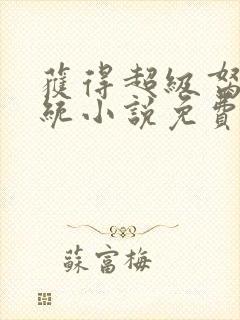 獲得超級
統小說免費
蘇富梅